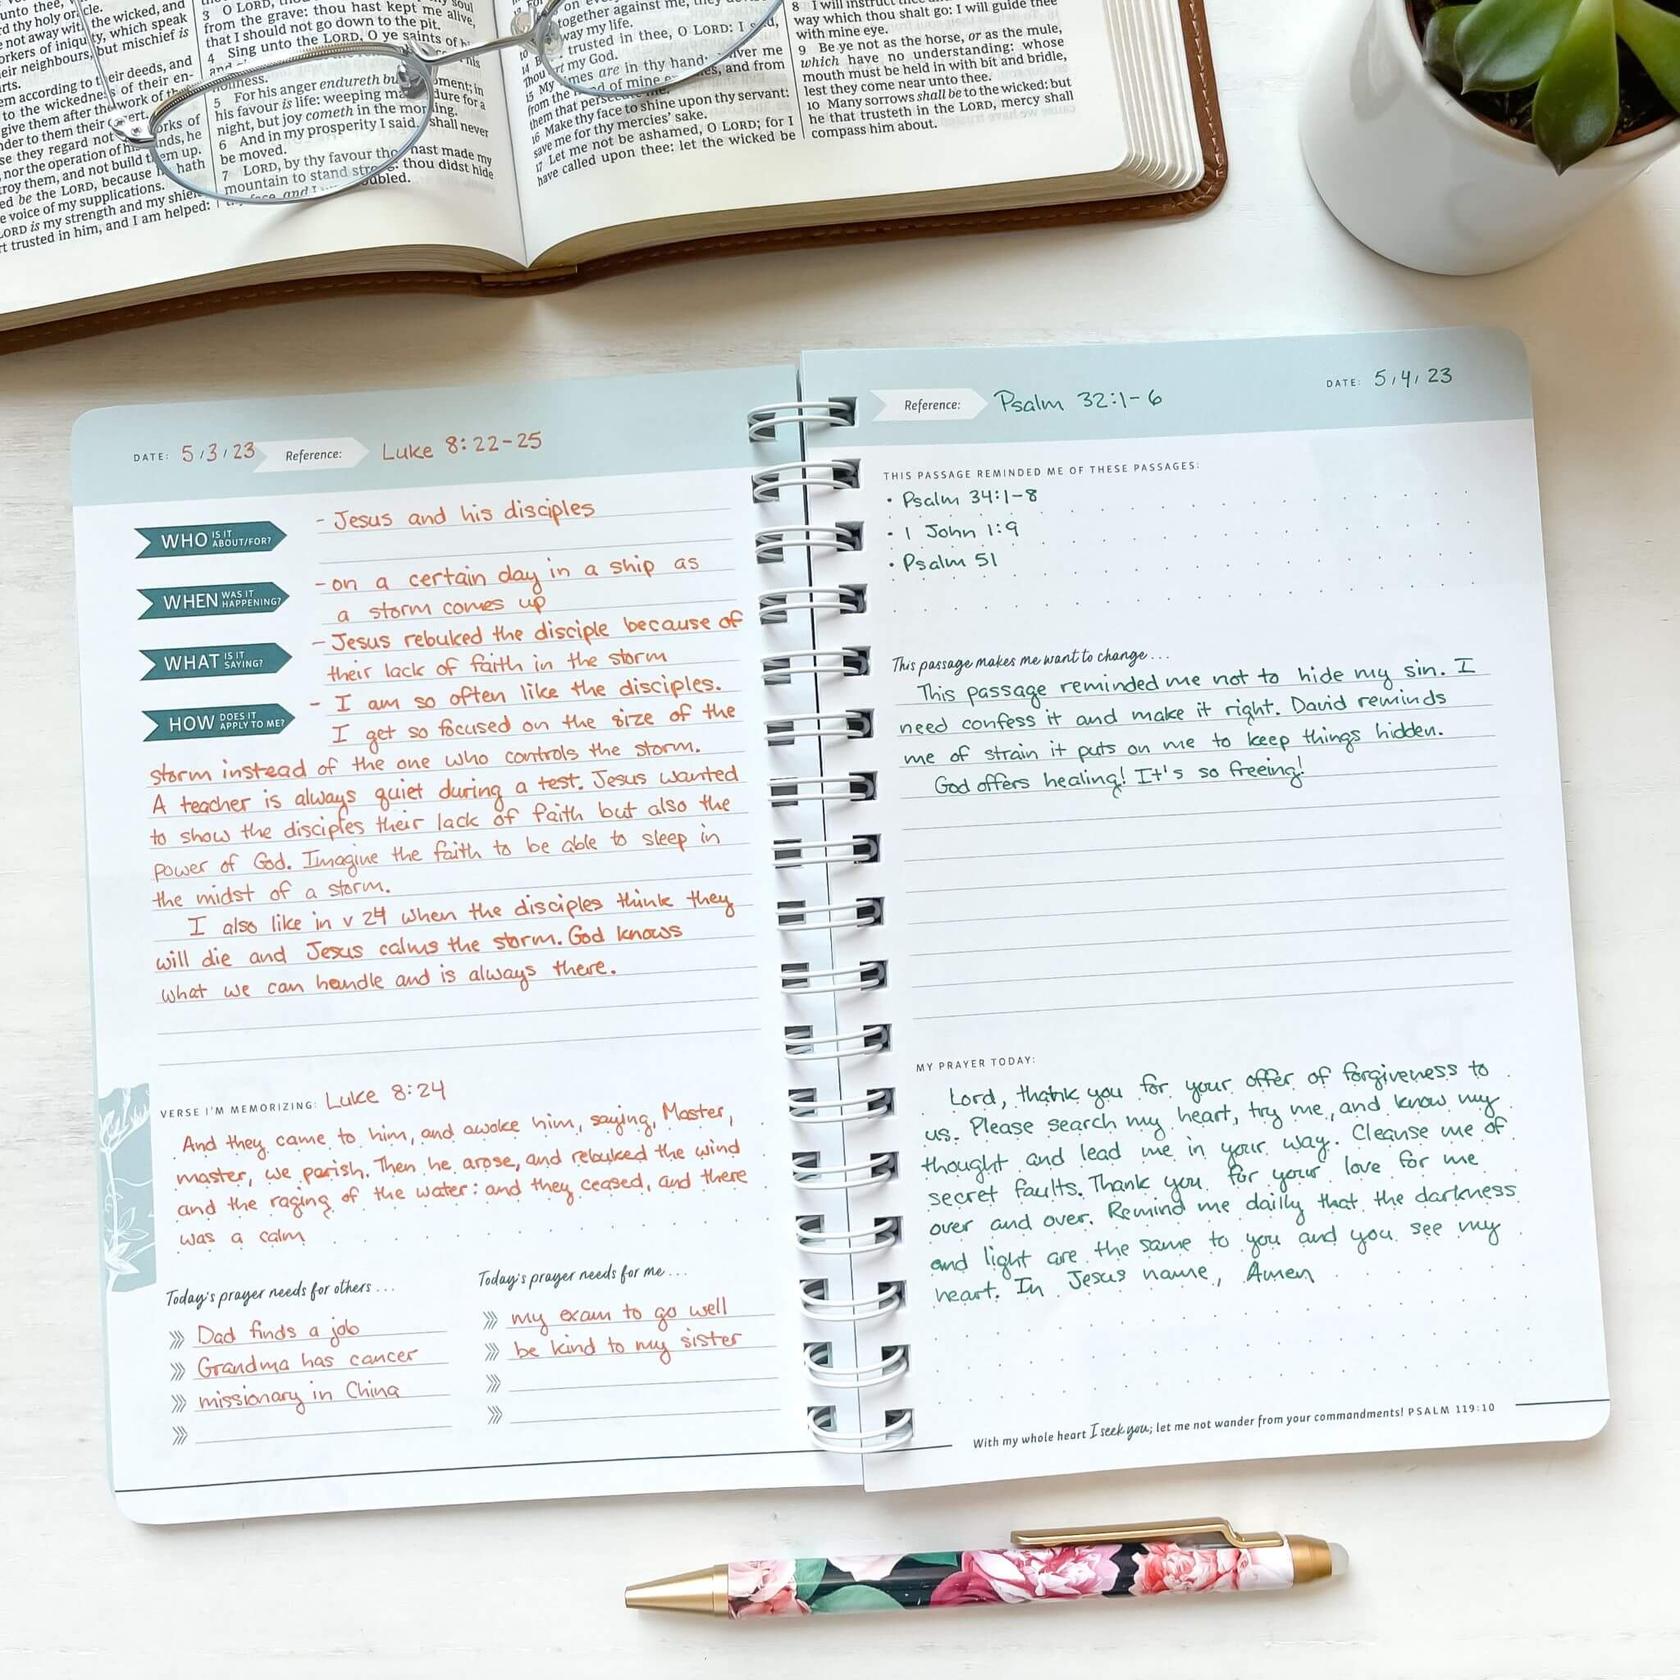 unto thee,
d thy holy or cle.
not away with the wicked, and
orkers of iniquity, which speak
eir neighbours, but mischief is
rts.
em according to their deeds, and
to the wickedness of their en-
give them after the work of
nder to them their
se they regard not works of
nor the operation of his hands, he
roy them, and not build them up.
ed be the LORD, because hath
e voice of my supplications.
LORD is my strength and my shield
rt trusted in him, and I am helped:
soul
3 O LORD,
from the grave: thou hast kept me alive,
that I should not go down to the pit.
4 Sing unto the LORD, O ye saints of his
holiness.
5 For his anger endureth but a moment; in
his favour is life: weeping may endure for a
night, but joy cometh in the morning.
6 And in my prosperity I said, shall never
be moved.
7 LORD, by thy favour thou hast made my
mountain to stand strong: thou didst hide
thy face, and I was troubled.
on every
together against me, they
way my life.
14 trusted in thee, O LORD: I said,
thou art my God.
15 My times are in thy hand: deliver me
from the hand of mine enemies, and from
them that persecute me.
16 Make thy face to shine upon thy servant:
save me for thy mercies' sake.
17 Let me not be ashamed, O LORD; for I
have called upon thee: let the wicked be
8 I will instruct thee and
way which thou shalt go: I will guide thee
with mine eye.
9 Be ye not as the horse, or as the mule,
which have no understanding: whose
mouth must be held in with bit and bridle,
lest they come near unto thee.
10 Many sorrows shall be to the wicked: but
he that trusteth in the LORD, mercy shall
compass him about.
DATE: 5/3/23 Reference: Luke 8:22-25
WHO IS IT ABOUT/FOR? - Jesus and his disciples
WHEN WAS IT HAPPENING? - on a certain day in a ship as
a storm comes up
WHAT IS IT SAYING? - Jesus rebuked the disciple because of
their lack of faith in the storm
HOW DOES IT APPLY TO ME? - I am so often like the disciples.
I get so focused on the size of the
storm instead of the one who controls the storm.
A teacher is always quiet during a test. Jesus wanted
to show the disciples their lack of faith but also the
power of God. Imagine the faith to be able to sleep in
the midst of a storm.
I also like in v 24 when the disciples think they
will die and Jesus calms the storm. God knows
what we can handle and is always there.
VERSE I'M MEMORIZING: Luke 8:24
And they came to him, and awoke him, saying, Master,
master, we perish. Then he arose, and rebuked the wind
and the raging of the water: and they ceased, and there
was a calm
Today's prayer needs for others ...
Dad finds a job
Grandma has cancer
missionary in China
Today's prayer needs for me ...
my exam to go well
be kind to my sister
Reference: Psalm 32:1-6 DATE: 5/4/23
THIS PASSAGE REMINDED ME OF THESE PASSAGES:
• Psalm 34:1-8
• 1 John 1:9
• Psalm 51
This passage makes me want to change ...
This passage reminded me not to hide my sin. I
need confess it and make it right. David reminds
me of strain it puts on me to keep things hidden.
God offers healing! It's so freeing!
MY PRAYER TODAY:
Lord, thank you for your offer of forgiveness to
us. Please search my heart, try me, and know my
thought and lead me in your way. Cleanse me of
secret faults. Thank you for your love for me
over and over. Remind me dailly that the darkness
and light are the same to you and you see my
heart. In Jesus name, Amen
With my whole heart I seek you; let me not wander from your commandments! PSALM 119:10